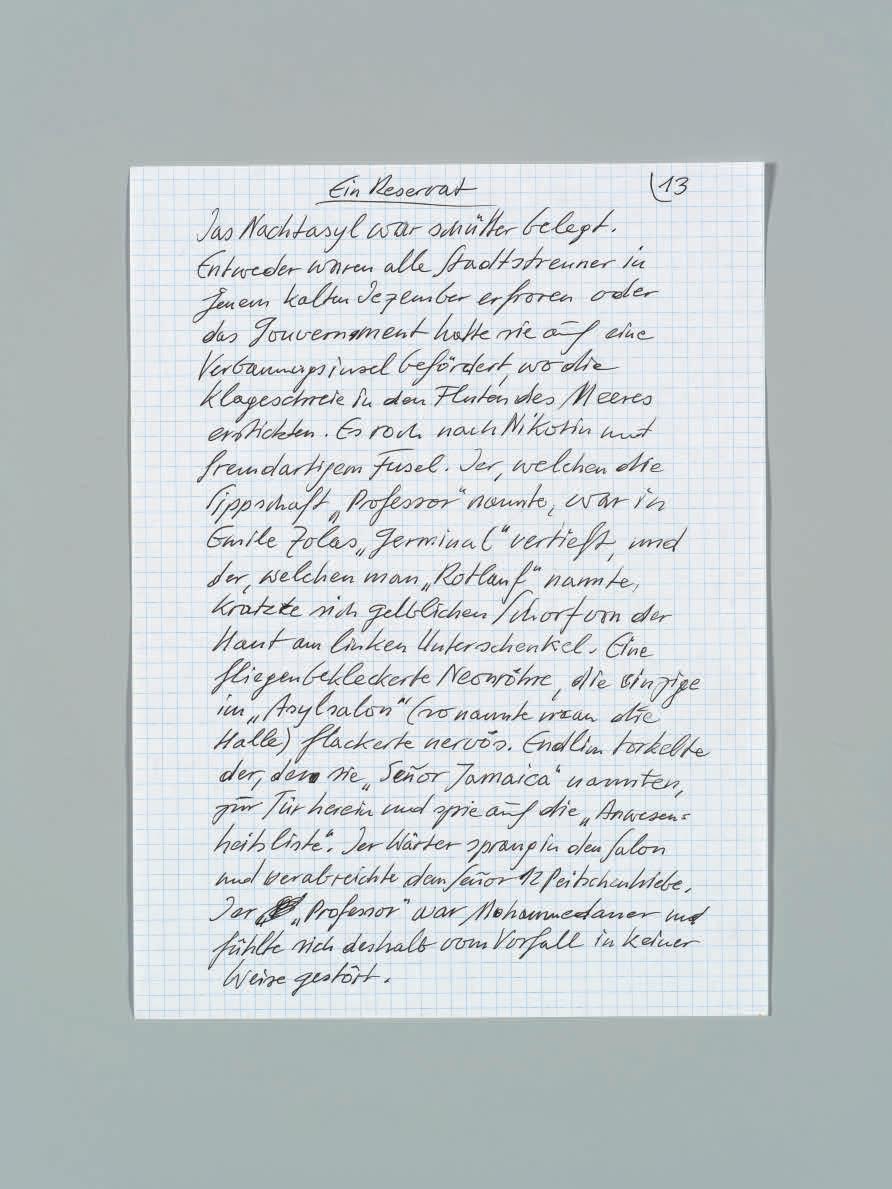 Ein Reservat
13
Das Nachtasyl war schütter belegt.
Entweder waren alle Stadtstreuner in
jenem kalten Dezember erfroren oder
das Gouvernement hatte sie auf eine
Verbannungsinsel befördert, wo die
Klageschreie in den Fluten des Meeres
erstickten. Es roch nach Nikotin und
fremdartigem Fusel. Der, welchen die
Sippschaft „Professor" nannte, war in
Emile Zolas „Germinal" vertieft, und
der, welchen man „Rotlauf" nannte,
kratzte sich gelblichen Schorf von der
Haut am linken Unterschenkel. Eine
fliegenbekleckerte Neonröhre, die einzige
im „Asylsalon" (so nannte man die
Halle) flackerte nervös. Endlich torkelte
der, den sie „Señor Jamaica" nannten,
zur Tür herein und spie auf die „Anwesen=
heitsliste". Der Wärter sprang in den Salon
und verabreichte dem Señor 12 Peitschenhiebe.
Der „Professor" war Mohammedaner und
fühlte sich deshalb vom Vorfall in keiner
Weise gestört.